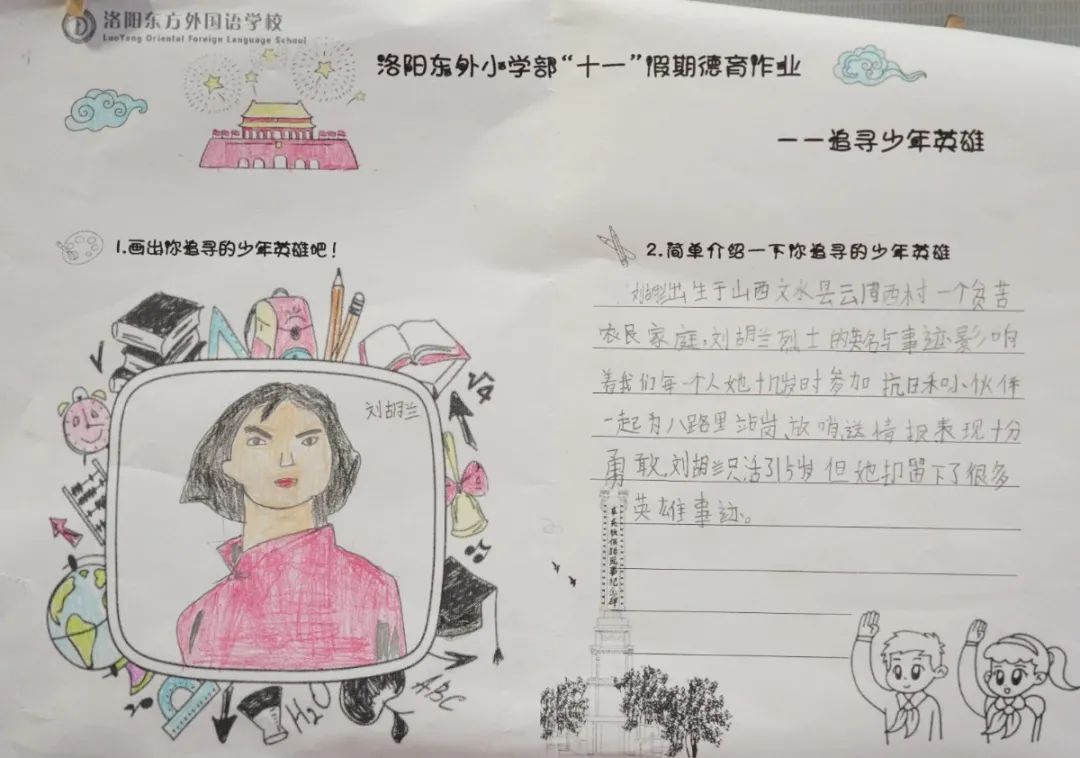 洛阳东方外国语学校
LuoYang Oriental Foreign Language School
洛阳东外小学部“十一”假期德育作业
——追寻少年英雄
1.画出你追寻的少年英雄吧！
刘胡兰
√4
ABC
H2O
2.简单介绍一下你追寻的少年英雄
刘胡兰出生于山西文水县云周西村一个贫苦
农民家庭,刘胡兰烈士的英名与事迹影响
着我们每一个人她十几岁时参加抗日和小伙伴
一起为八路里站岗、放哨、送情报表现十分
勇敢,刘胡兰只活了15岁但她却留下了很多
英雄事迹。